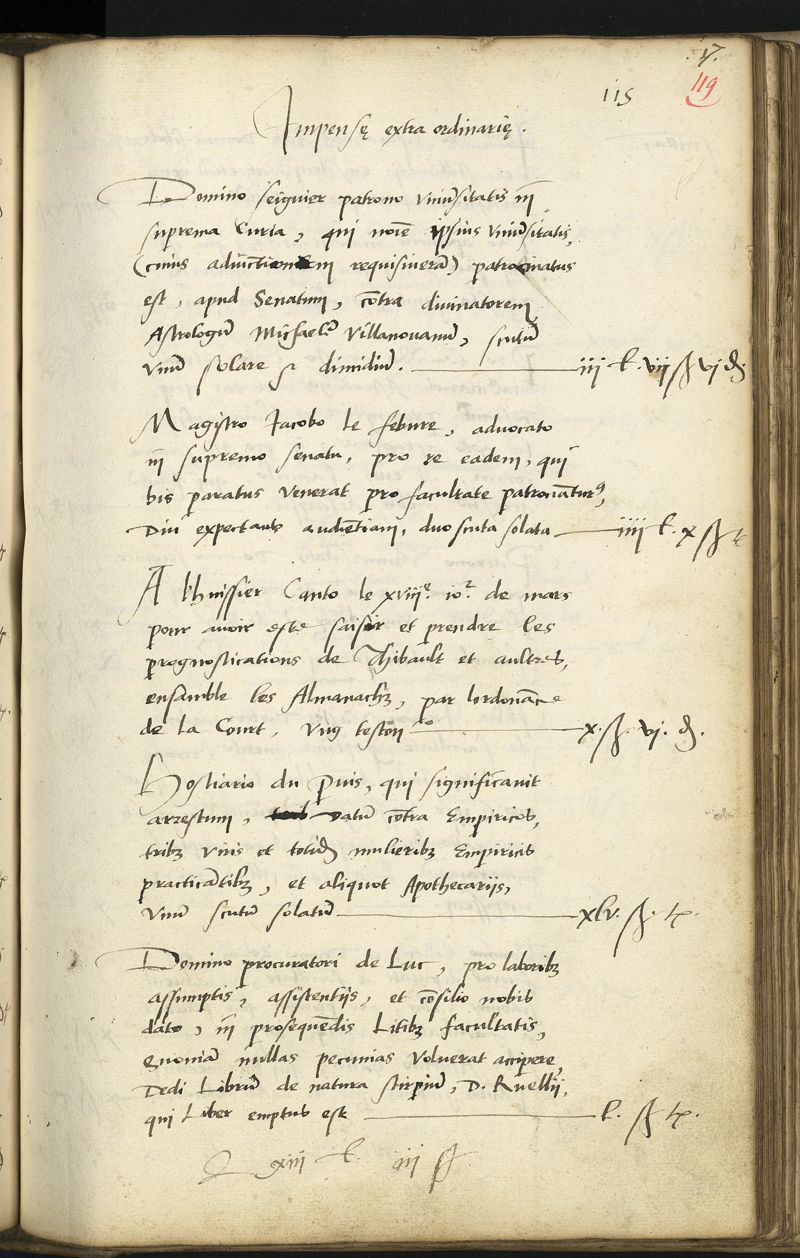 .v.
119
115
Impensę extra ordinarię.
Domino seiguier patrono Univ͛sitatis in̄
suprema Curia, qui noīe ipsius Univ͛sitatis,
(cuius adiūctionem requisiverā) patrocinatus
est, apud Senatum, cōtra divinatorem
Astrologū Michaelē Villanovanū, scutū
unū solare & dimidiū. iii l. vii ß vj d.
Magistro Iacobo le febure, advocato
in̄ supremo senatu, pro re eadem, qui
bis paratus venerat pro facultate patronātur⁹,
Diu expectans audiētiam, duo scuta solata iiii l. x ß t
A lhuissier Canto le xviiiᵉ. ioʳ. de mars
pour avoir este saisir et prendre les
prognostications de Thibault et aultres,
ensamble les Almanachz, par lordonāce
de la Court, ung teston x. ß vj. d.
Hostiario du Puis, qui significavit
arrestum, datū cōtra Empiricos,
tribȝ viris et totidē mulieribȝ Empiricis
practicātibȝ, et aliquot Apothecariis,
unū scutū solatū xlv. ß. t.
Domino procuratori de Luc, pro laboribȝ
assumptis, assistentiis, et cōsilio nobis
dato, in̄ prosequēdis Litibȝ facultatis,
quoniā nullas pecunias voluerat accipere,
Dedi Librū de natura stirpiū, D. Ruellii,
qui Liber emptus est l. ß t.
xiii l. iii ß